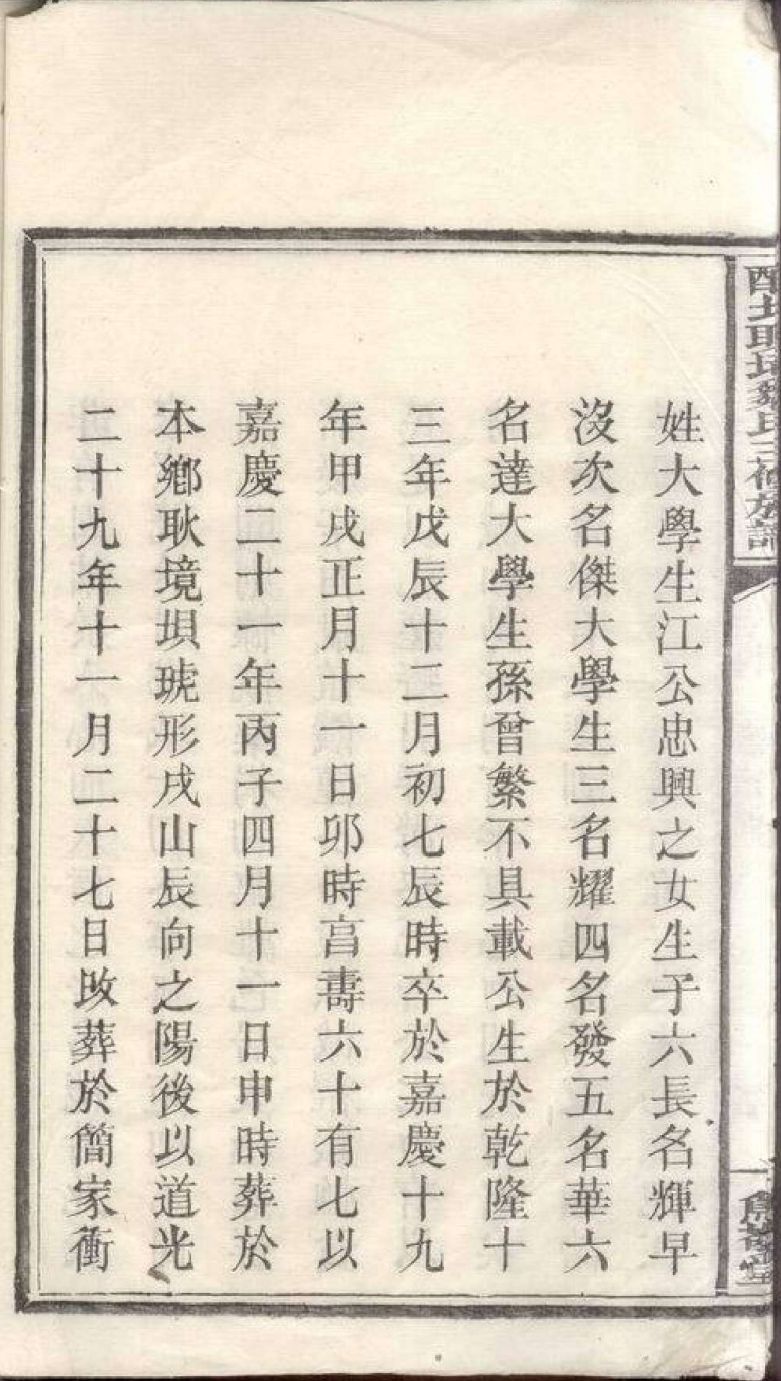 姓大學生江公忠興之女生于六長名輝早
沒次名傑大學生三名耀四名發五名華六
名達大學生孫曾繁不具載公生於乾隆十
三年戊辰十二月初七辰時卒於嘉慶十九
年甲戌正月十一日卯時亯壽六十有七以
嘉慶二十一年丙子四月十一日申時葬於
本鄉耿境垻琥形戌山辰向之陽後以道光
二十九年十一月二十七日改葬於簡家衝